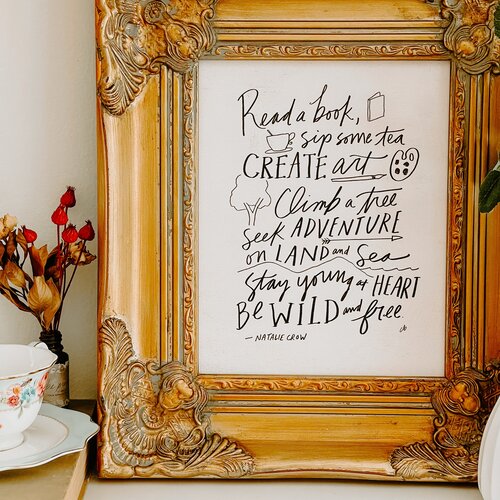 Read a book,
sip some tea
CREATE art
Climb a tree
seek ADVENTURE
on LAND and Sea
stay young at HEART
Be WILD and free.
— NATALIE CROW